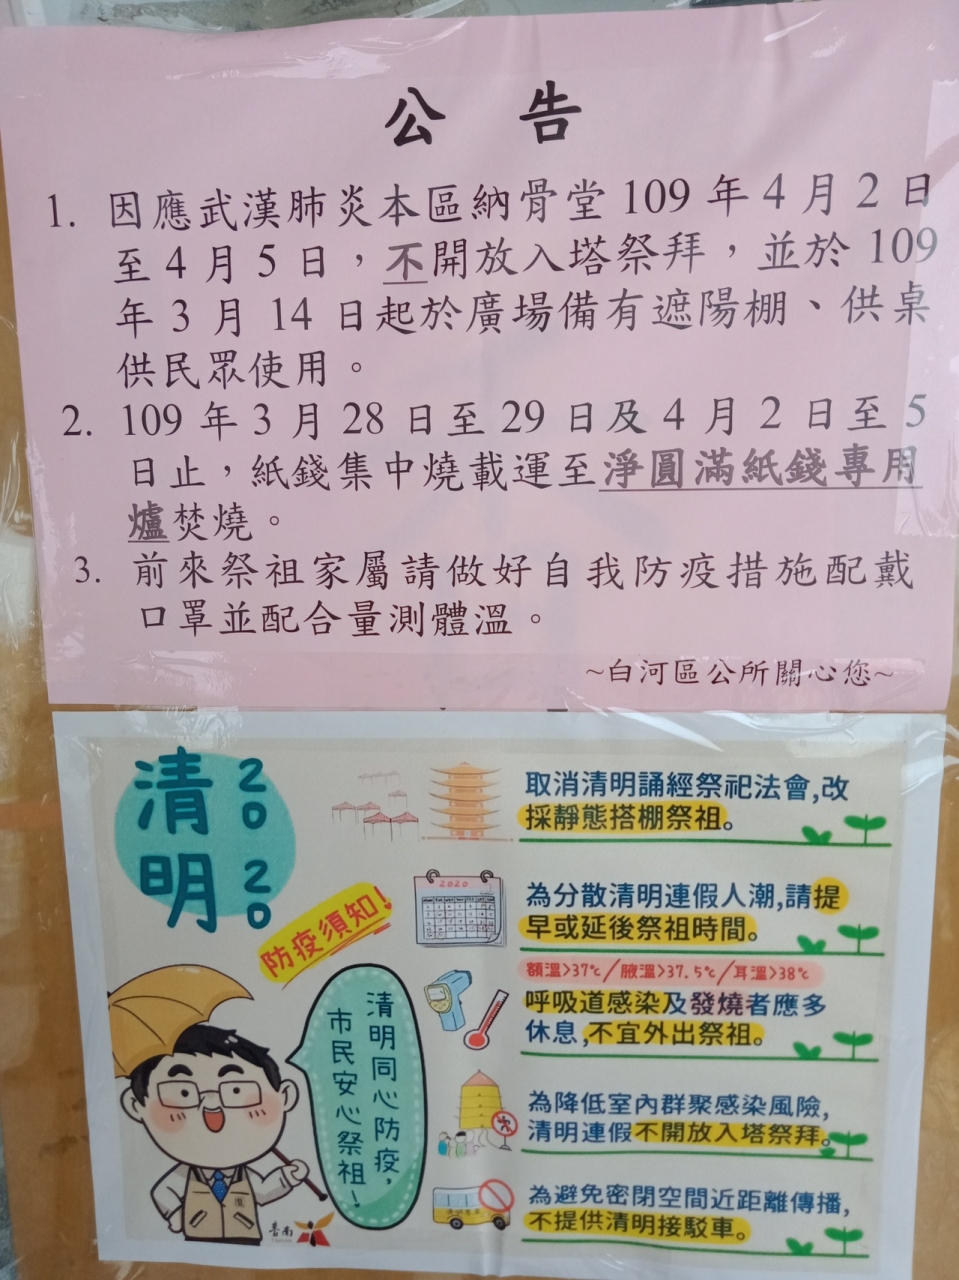 公 告
1. 因應武漢肺炎本區納骨堂 109 年 4 月 2 日
至 4 月 5 日，不開放入塔祭拜，並於 109
年 3 月 14 日起於廣場備有遮陽棚、供桌
供民眾使用。
2. 109 年 3 月 28 日至 29 日及 4 月 2 日至 5
日止，紙錢集中燒載運至淨圓滿紙錢專用
爐焚燒。
3. 前來祭祖家屬請做好自我防疫措施配戴
口罩並配合量測體溫。
~白河區公所關心您~
清明
2020
防疫須知!
清明同心防疫,
市民安心祭祖!
臺南
取消清明誦經祭祀法會,改
採靜態搭棚祭祖。
2020
為分散清明連假人潮,請提
早或延後祭祖時間。
額溫>37℃/腋溫>37.5℃/耳溫>38℃
呼吸道感染及發燒者應多
休息,不宜外出祭祖。
為降低室內群聚感染風險,
清明連假不開放入塔祭拜。
為避免密閉空間近距離傳播,
不提供清明接駁車。